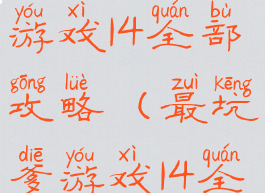 yóu xì quán bù
游戏14全部
gōng lüè zuì kēng
攻略（最坑
diē yóu xì quán
爹游戏14全